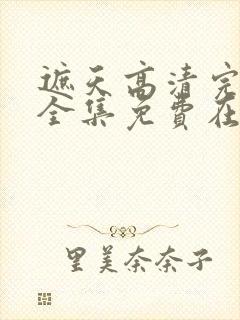 遮天高清完
全集免費在
里美奈奈子